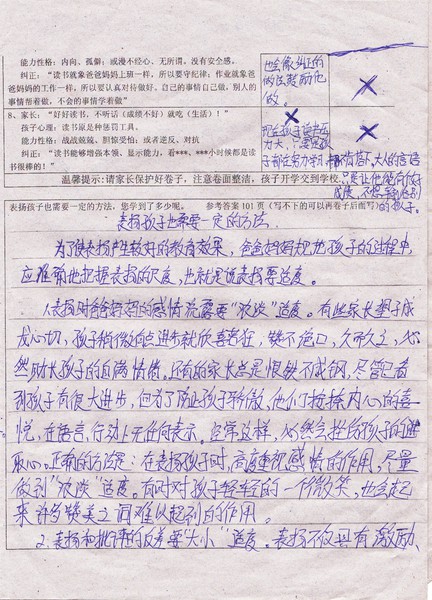 能力性格：内向、孤僻；或漫不经心、无所谓，没有安全感。
纠正：“读书就象爸爸妈妈上班一样，所以要守纪律；作业就象爸爸妈妈的工作一样，所以要认真对待做好。自己的事情自己做，别人的事情帮着做，不会的事情学着做”
也会像纠正的
做法鼓励他
做。
8、家长：“好好读书，不听话（成绩不好）就吃（生活）！”
孩子心理：读书原是种惩罚工具。
能力性格：战战兢兢、胆惊受怕；或者逆反、对抗
纠正：“读书能够增强本领、显示能力，看***、***小时候都是读书很棒的！”
现在孩子读书压
力大，只要孩
子
温馨提示：请家长保护好卷子，注意卷面整洁，孩子开学交到学校。
表扬孩子也需要一定的方法，您学到了多少呢。 参考答案 101 页（写不下的可以再卷子后面写）
表扬孩子也需要一定的方法。
为了使表扬产生较好的教育效果，爸爸妈妈
应准确地把握表扬的尺度，也就是说表扬要适度。
1、表扬时爸爸妈妈的感情流露要“浓淡”适度。有些家长望子成
龙心切，孩子稍微有点进步就欣喜若狂，赞不绝口，久而久之，必
然助长孩子的自满情绪。还有的家长总是恨铁不成钢，尽管已看
到孩子有很大进步，但为了防止孩子骄傲，他们压抑内心的喜
悦，在语言，行动上无任何表示。经常这样，必然会挫伤孩子的进
取心。正确的方法是：在表扬孩子时，高度重视感情的作用，尽量
做到“浓淡”适度。有时对孩子轻轻的一个微笑，也会起
来许多赞美之词难以起到的作用。
2、表扬和批评的反差要“大小”适度。表扬不仅具有激励、